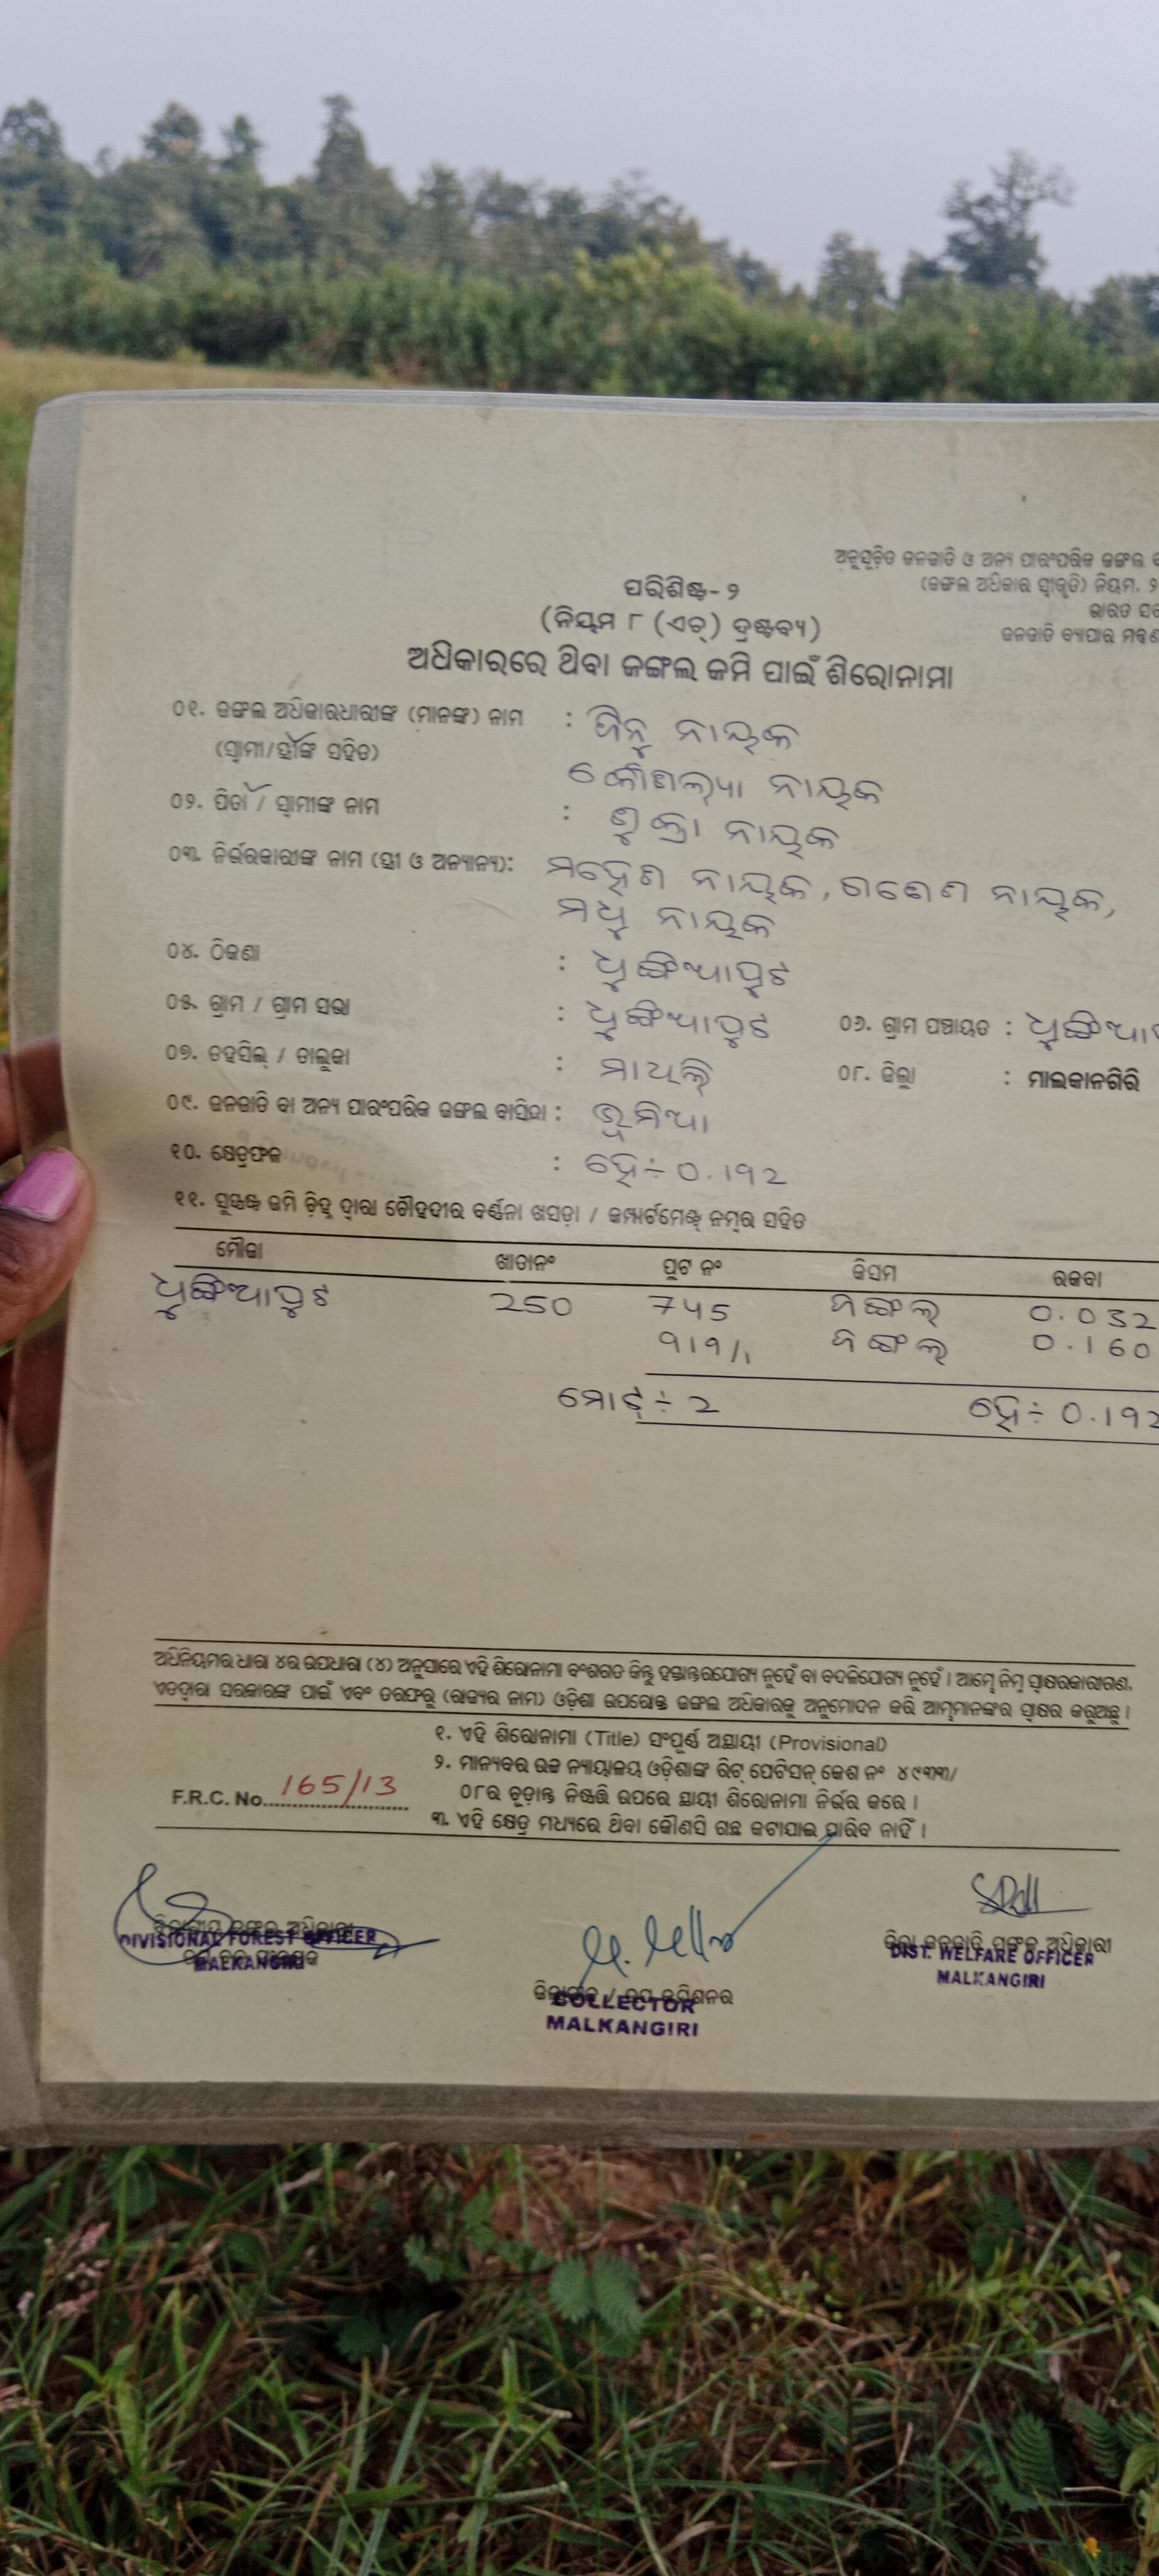 ଅନୁସୂଚିତ ଜନଜାତି ଓ ଅନ୍ୟ ପାରଂପରିକ ଜଙ୍ଗଲ
(ଜଙ୍ଗଲ ଅଧିକାର ସ୍ୱୀକୃତି) ନିୟମ, ୨
ଭାରତ
ଜନଜାତି ବ୍ୟାପାର
ପରିଶିଷ୍ଟ- ୨
(ନିୟମ ୮ (ଏଚ୍) ଦ୍ରଷ୍ଟବ୍ୟ)
ଅଧିକାରରେ ଥିବା ଜଙ୍ଗଲ ଜମି ପାଇଁ ଶିରୋନାମା
୦୧. ଜଙ୍ଗଲ ଅଧିକାରଧାରୀଙ୍କ (ମାନଙ୍କ) ନାମ : ଜିନୁ ନାୟକ
(ସ୍ୱାମୀ/ସ୍ତ୍ରୀଙ୍କ ସହିତ) କୌଶଲ୍ୟା ନାୟକ
୦୨. ପିତା / ସ୍ୱାମୀଙ୍କ ନାମ : ଶୁକ୍ରା ନାୟକ
୦୩. ନିର୍ଭରକାରୀଙ୍କ ନାମ (ସ୍ତ୍ରୀ ଓ ଅନ୍ୟାନ୍ୟ): ମହେଶ ନାୟକ, ଗଣେଶ ନାୟକ,
ମଧୁ ନାୟକ
୦୪. ଠିକଣା : ଧୁଙ୍ଗିଆପୁଟ
୦୫. ଗ୍ରାମ / ଗ୍ରାମ ସଭା : ଧୁଙ୍ଗିଆପୁଟ ୦୬. ଗ୍ରାମ ପଞ୍ଚାୟତ : ଧୁଙ୍ଗିଆ
୦୭. ତହସିଲ୍ / ତାଲୁକା : ମାଥିଲି ୦୮. ଜିଲ୍ଲା : ମାଲକାନଗିରି
୦୯. ଜନଜାତି ବା ଅନ୍ୟ ପାରଂପରିକ ଜଙ୍ଗଲ ବାସିନ୍ଦା : ଭୂମିଆ
୧୦. କ୍ଷେତ୍ରଫଳ : ହେ÷ 0.192
୧୧. ସୁସ୍ପଷ୍ଟ ଜମି ଚିହ୍ନ ଦ୍ୱାରା ଚୌହଦୀର ବର୍ଣ୍ଣନା ଖସଡ଼ା / କମ୍ପାର୍ଟମେଣ୍ଟ ନମ୍ବର ସହିତ
ମୌଜା ଖାତାନଂ ପ୍ଲଟ ନଂ କିସମ ରକବା
ଧୁଙ୍ଗିଆପୁଟ 250 745 ଜଙ୍ଗଲ 0.032
919/1 ଜଙ୍ଗଲ 0.160
ମୋଟ୍ ÷ 2 ହେ÷ 0.192
ଅଧିନିୟମର ଧାରା ୪ର ଉପଧାରା (୪) ଅନୁସାରେ ଏହି ଶିରୋନାମା ବଂଶଗତ କିନ୍ତୁ ହସ୍ତାନ୍ତରଯୋଗ୍ୟ ନୁହେଁ ବା ବଦଳିଯୋଗ୍ୟ ନୁହେଁ । ଆମ୍ଭେ ନିମ୍ନ ସ୍ୱାକ୍ଷରକାରୀଗଣ,
ଏତଦ୍ୱାରା ସରକାରଙ୍କ ପାଇଁ ଏବଂ ତରଫରୁ (ରାଜ୍ୟର ନାମ) ଓଡ଼ିଶା ଉପରୋକ୍ତ ଜଙ୍ଗଲ ଅଧିକାରକୁ ଅନୁମୋଦନ କରି ଆମ୍ଭମାନଙ୍କର ସ୍ୱାକ୍ଷର କରୁଅଛୁ ।
୧. ଏହି ଶିରୋନାମା (Title) ସଂପୂର୍ଣ୍ଣ ଅସ୍ଥାୟୀ (Provisional)
୨. ମାନ୍ୟବର ଉଚ୍ଚ ନ୍ୟାୟାଳୟ ଓଡ଼ିଶାଙ୍କ ରିଟ୍ ପେଟିସନ୍ କେଶ ନଂ ୪୯୩୩/
୦୮ର ଚୂଡ଼ାନ୍ତ ନିଷ୍ପତ୍ତି ଉପରେ ସ୍ଥାୟୀ ଶିରୋନାମା ନିର୍ଭର କରେ ।
F.R.C. No. 165/13
୩. ଏହି କ୍ଷେତ୍ର ମଧ୍ୟରେ ଥିବା କୌଣସି ଗଛ କଟାଯାଇ ପାରିବ ନାହିଁ ।
DIVISIONAL FOREST OFFICER
MALKANGIRI
COLLECTOR
MALKANGIRI
ଜିଲ୍ଲା ଜନଜାତି ମଙ୍ଗଳ ଅଧିକାରୀ
DIST. WELFARE OFFICER
MALKANGIRI